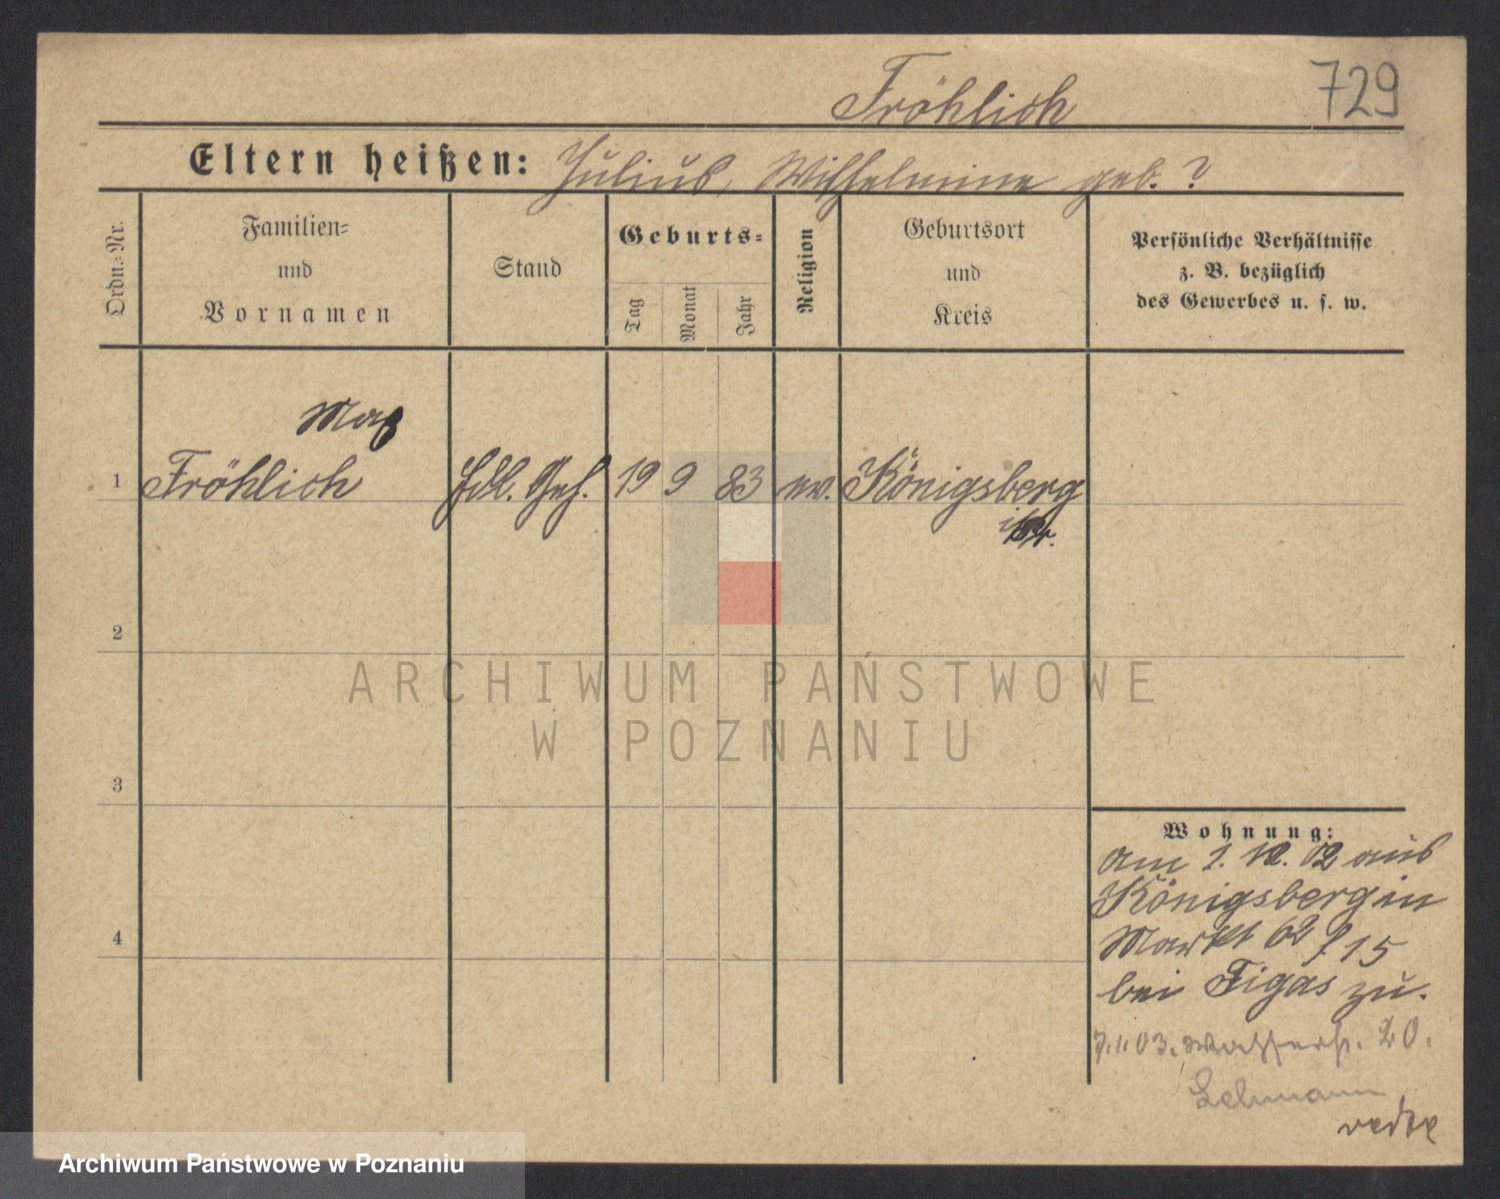 Fröhlich
729
Eltern heißen: Julius, Wilhelmine geb. ?
Ordn.-Nr.
Familien-
und
Vornamen
Stand
Geburts-
Tag
Monat
Jahr
Religion
Geburtsort
und
Kreis
Persönliche Verhältnisse
z. B. bezüglich
des Gewerbes u. s. w.
Max
1 Fröhlich Hdl. Geh. 19 9 83 ev. Königsberg
i/Pr.
2
3
4
Wohnung:
am 1. 12. 02 aus
Königsberg in
Markt 62 / 15
bei Figas zu.
7. 1. 03. Wasserst. 20.
Lehmann
ARCHIWUM PAŃSTWOWE
W POZNANIU
Archiwum Państwowe w Poznaniu